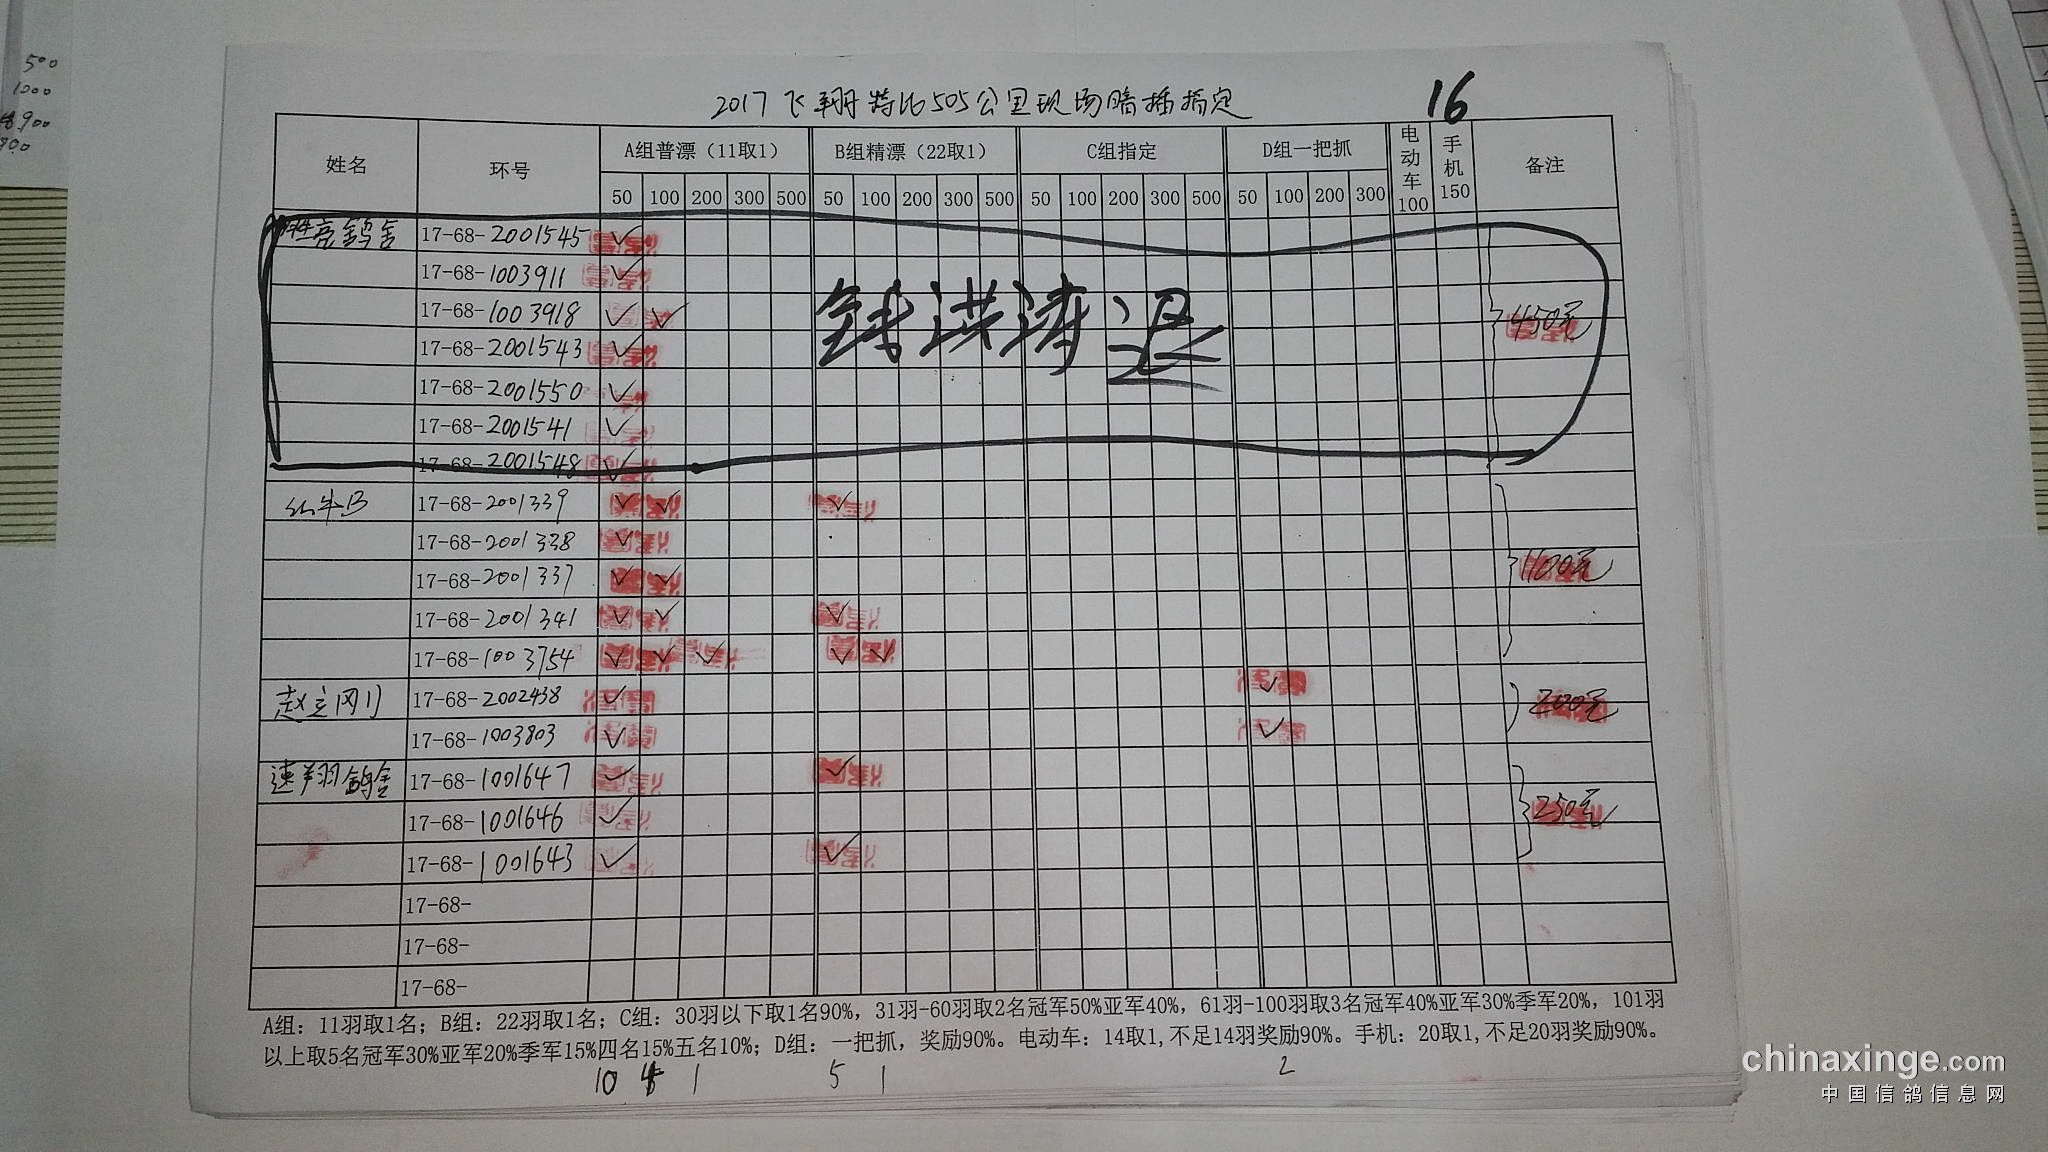 500
1000
900
2017飞翔特比505公里现场暗插指定 16
姓名 环号 A组普漂（11取1） B组精漂（22取1） C组指定 D组一把抓 电动车100 手机150 备注
50 100 200 300 500 50 100 200 300 500 50 100 200 300 500 50 100 200 300
胜亮鸽舍 17-68-2001545 ✓
17-68-1003911 ✓
17-68-1003918 ✓ ✓ 450元
钱洪涛退
17-68-2001543 ✓
17-68-2001550 ✓
17-68-2001541 ✓
17-68-2001548 ✓
17-68-2001339 ✓ ✓ ✓
17-68-2001338 ✓
17-68-2001337 ✓ ✓ 1100元
17-68-2001341 ✓ ✓ ✓
17-68-1003754 ✓ ✓ ✓ ✓ ✓
赵立刚 17-68-2002438 ✓ ✓ 200元
17-68-1003803 ✓ ✓
速翔鸽舍 17-68-1001647 ✓ ✓
17-68-1001646 ✓ 250元
17-68-1001643 ✓ ✓
17-68-
17-68-
17-68-
A组：11羽取1名；B组：22羽取1名；C组：30羽以下取1名90%，31羽-60羽取2名冠军50%亚军40%，61羽-100羽取3名冠军40%亚军30%季军20%，101羽
以上取5名冠军30%亚军20%季军15%四名15%五名10%；D组：一把抓，奖励90%。电动车：14取1,不足14羽奖励90%。手机：20取1,不足20羽奖励90%。
10 4 1 5 1 2
chinaxinge.com
中国信鸽信息网